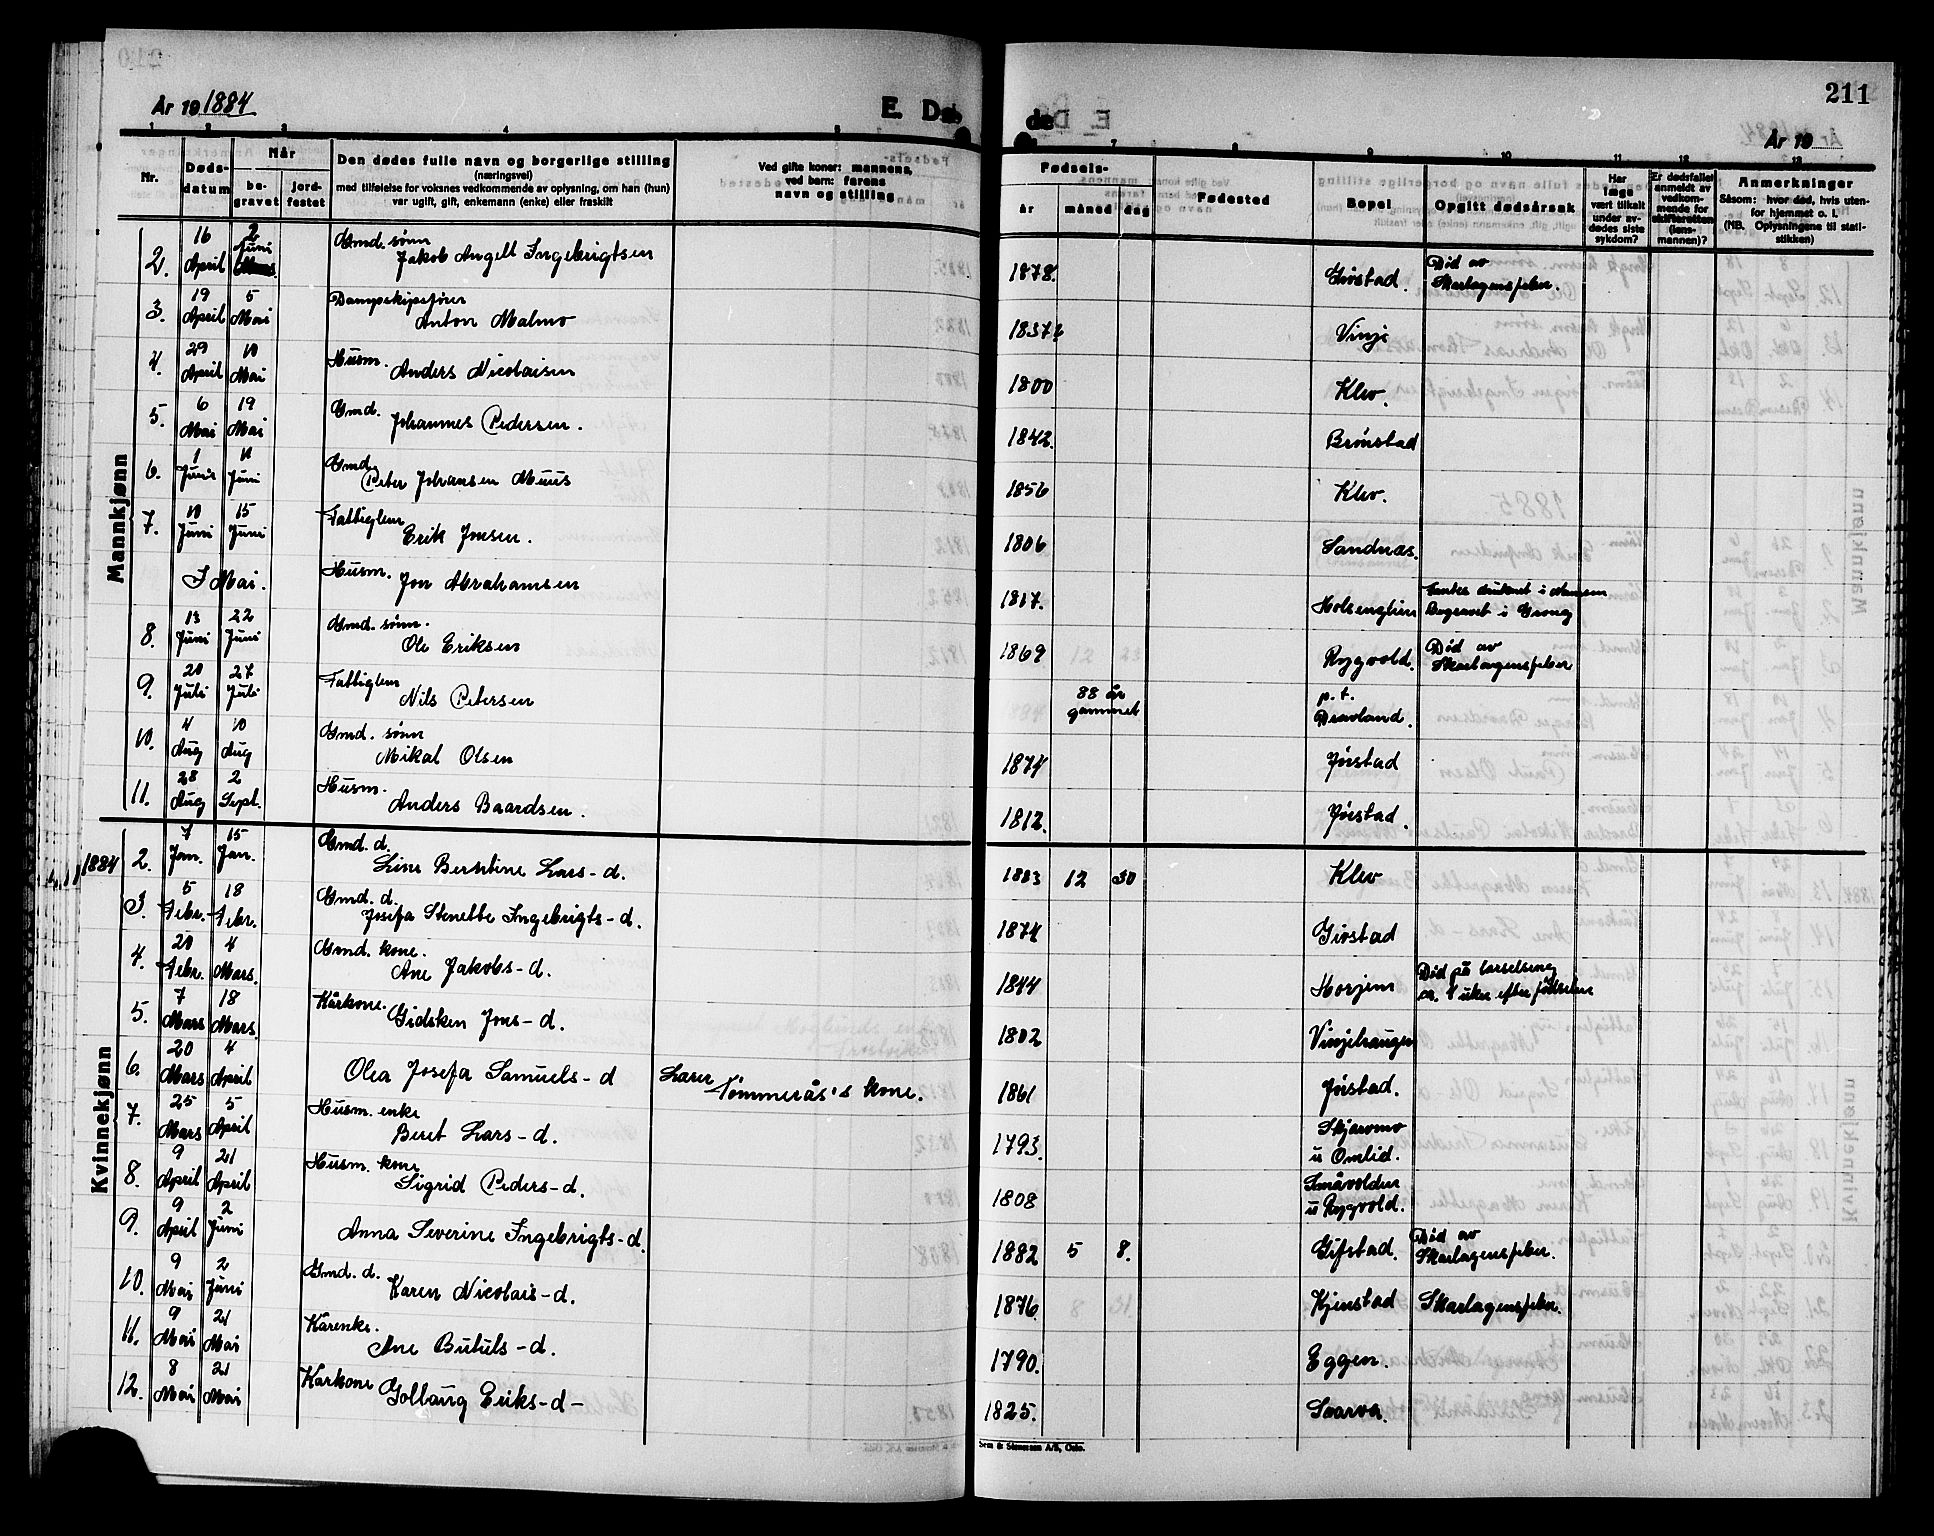 År 19 1884
E. Dø
de
211
År 19
Nr.
Døds-
datum
Når
be-
gravet
jord-
festet
Den dødes fulle navn og borgerlige stilling
(næringsvei)
med tilføielse for voksnes vedkommende av oplysning, om han (hun)
var ugift, gift, enkemann (enke) eller fraskilt
Ved gifte koner: mannens,
ved barn: farens
navn og stilling
Fødsels-
år
måned
dag
Fødested
Bopel
Opgitt dødsårsak
Har
læge
vært tilkalt
under av-
dødes siste
sykdom?
Er dødsfallet
anmeldt av
vedkom-
mende for
skifteretten
(lens-
mannen)?
Anmerkninger
Såsom: hvor død, hvis uten-
for hjemmet o. l.
(NB. Oplysningene til stati-
stikken)
Mannkjønn
2. 16 April 2 Juni Gmd. sønn
Jakob Angell Ingebrigtsen 1878. Givstad. Død av
Skarlagensfeber.
3. 19 April 5 Mai Dampskipsfører
Anton Malmo 1837 Vinje
4. 29 April 10 Mai Husm.
Anders Nicolaisen 1800 Klev.
5. 6 Mai 19 Mai Gmd.
Johannes Pedersen. 1842. Brønstad
6. 1 Juni 11 Juni Gmd.
Peter Johansen Muus 1856 Klev.
7. 10 Juni 15 Juni Fattiglem
Erik Jonsen. 1806 Sandnæs.
I Mai. Husm.
Jon Abrahamsen 1817. Holsengtien
Begravet i Grong
8. 13 Juni 22 Juni Gmd. sønn.
Ole Eriksen 1869 12 23 Rygvold. Død av
Skarlagensfeber
9. 20 Juli 27 Juli Fattiglem
Nils Petersen 88 år
gammel p.t.
Dravland.
10. 4 Aug 10 Aug Gmd. sønn
Mikal Olsen 1874 Jørstad
11. 28 Aug 2 Sept. Husm.
Anders Baardsen. 1812. Jørstad.
Kvinnekjønn
1884 2. 7 Jan. 15 Jan. Gmd. d.
Line Berntine Lars-d. 1883 12 30 Klev
3. 5 Febr. 18 Febr. Gmd. d.
Josefa Stenette Ingebrigts-d. 1874 Givstad
4. 20 Febr. 4 Mars. Gmd. kone.
Ane Jakobs-d. 1844 Horjem Død på barselseng
ca. 1 uker efter fødselen
5. 7 Mars 18 Mars. Kårkone.
Gidsken Jons-d. 1802 Vinjehaugen
6. 20 Mars 4 April Olea Josefa Samuels-d Lærer
Tømmerås's kone. 1861 Jørstad.
7. 25 Mars 5 April Husm. enke
Beret Lars-d. 1793. Skjærmo
u Omlid.
8. 9 April 21 April Husm. kone
Sigrid Peders-d. 1808 Småvolden
u Rygvold.
9. 9 April 2 Juni Anna Severine Ingebrigts-d. 1882 5 8. Gifstad. Død av
Skarlagensfeber.
10. 9 Mai 2 Juni Gmd. d.
Karen Nicolais-d. 1876. 8 31. Kjenstad Skarlagensfeber.
11. 9 Mai 21 Mai Kårenke.
Ane Butuls-d. 1790. Eggen.
12. 8 Mai 21 Mai Kårkone
Golbaug Eriks-d- 1825. Snarva.
Sem & Stenersen A/S, Oslo.